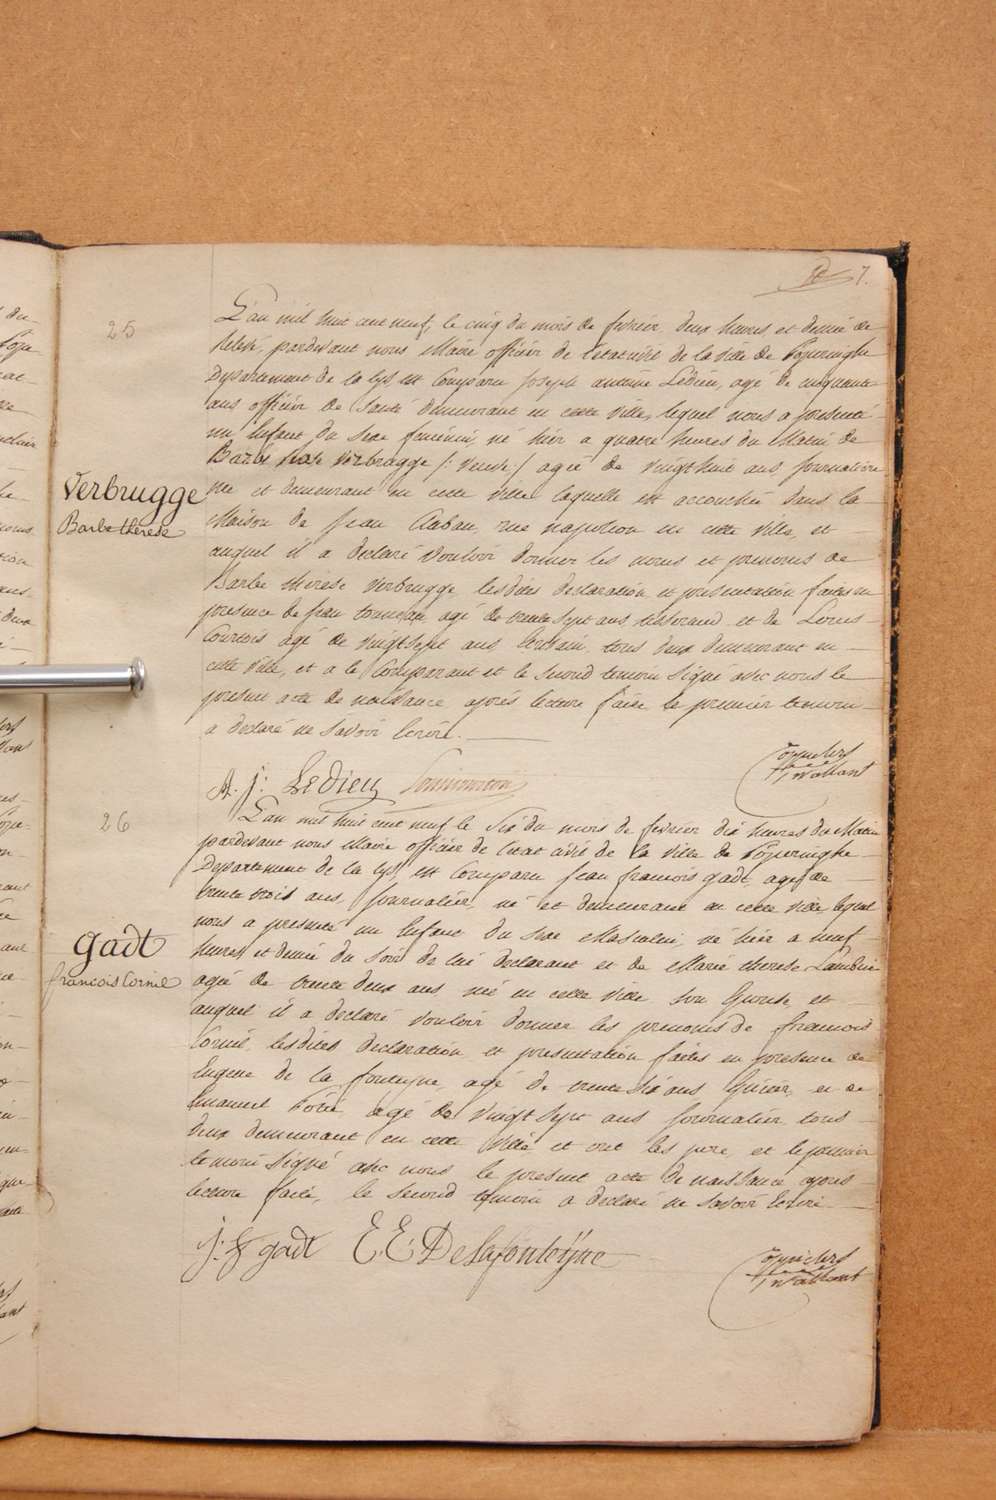 7.
25
L'an mil huit cent neuf, le cinq du mois de fevrier, deux heures et demie de
relevé, pardevant nous Maire officier de l'etat civil de la ville de Poperinghe
Departement de la lys, est Comparu Joseph antoine Ledieu, agé de cinquante
ans officier de Santé demeurant en cette ville, lequel nous a presenté
un Enfant du Sexe feminin, né hier a quatre heures du Matin de
Barbe Verbrugge /: veuve :/ agée de vingt huit ans Journaliere
née et demeurant en cette ville laquelle est accouchée dans la
Maison de Jean Aaban, rue napoleon en cette ville, et
auquel il a declaré vouloir donner les noms et prenoms de
Barbe therese Verbrugge, lesdites declaration et presentation faites en
presence de Jean agé de trente sept ans tisserand, et de Louis
Courtois agé de vingt sept ans Ecrivain, tous deux demeurant en
cette ville, et a le Comparant et le second temoin signé avec nous le
present acte de naissance, après lecture faite le premier temoin
a declaré ne savoir Ecrire.
Verbrugge
Barbe therese
A. J: Ledieu
26
L'an mil huit cent neuf le Six du mois de fevrier dix heures du Matin
pardevant nous Maire officier de l'etat civil de la ville de Poperinghe
Departement de la lys, est Comparu Jean francois gadt, agé de
trente trois ans, Journalier, né et demeurant en cette ville lequel
nous a presenté un Enfant du Sexe Masculin, né hier a neuf
heures et demie du soir de lui declarant et de Marie therese
agée de trente deux ans née en cette ville son Epouse, et
auquel il a declaré vouloir donner les prenoms de francois
Cornil, lesdites declaration et presentation faites en presence de
Eugene de la fonteyne, agé de trente six ans et de
Emanuel agé de vingt sept ans Journalier tous
deux demeurant en cette ville et ont les pere, et le premier
temoin signé avec nous le present acte de naissance après
lecture faite, le second temoin a declaré ne savoir Ecrire.
gadt
francois Cornil
j: f gadt E: E: Delafonteÿne